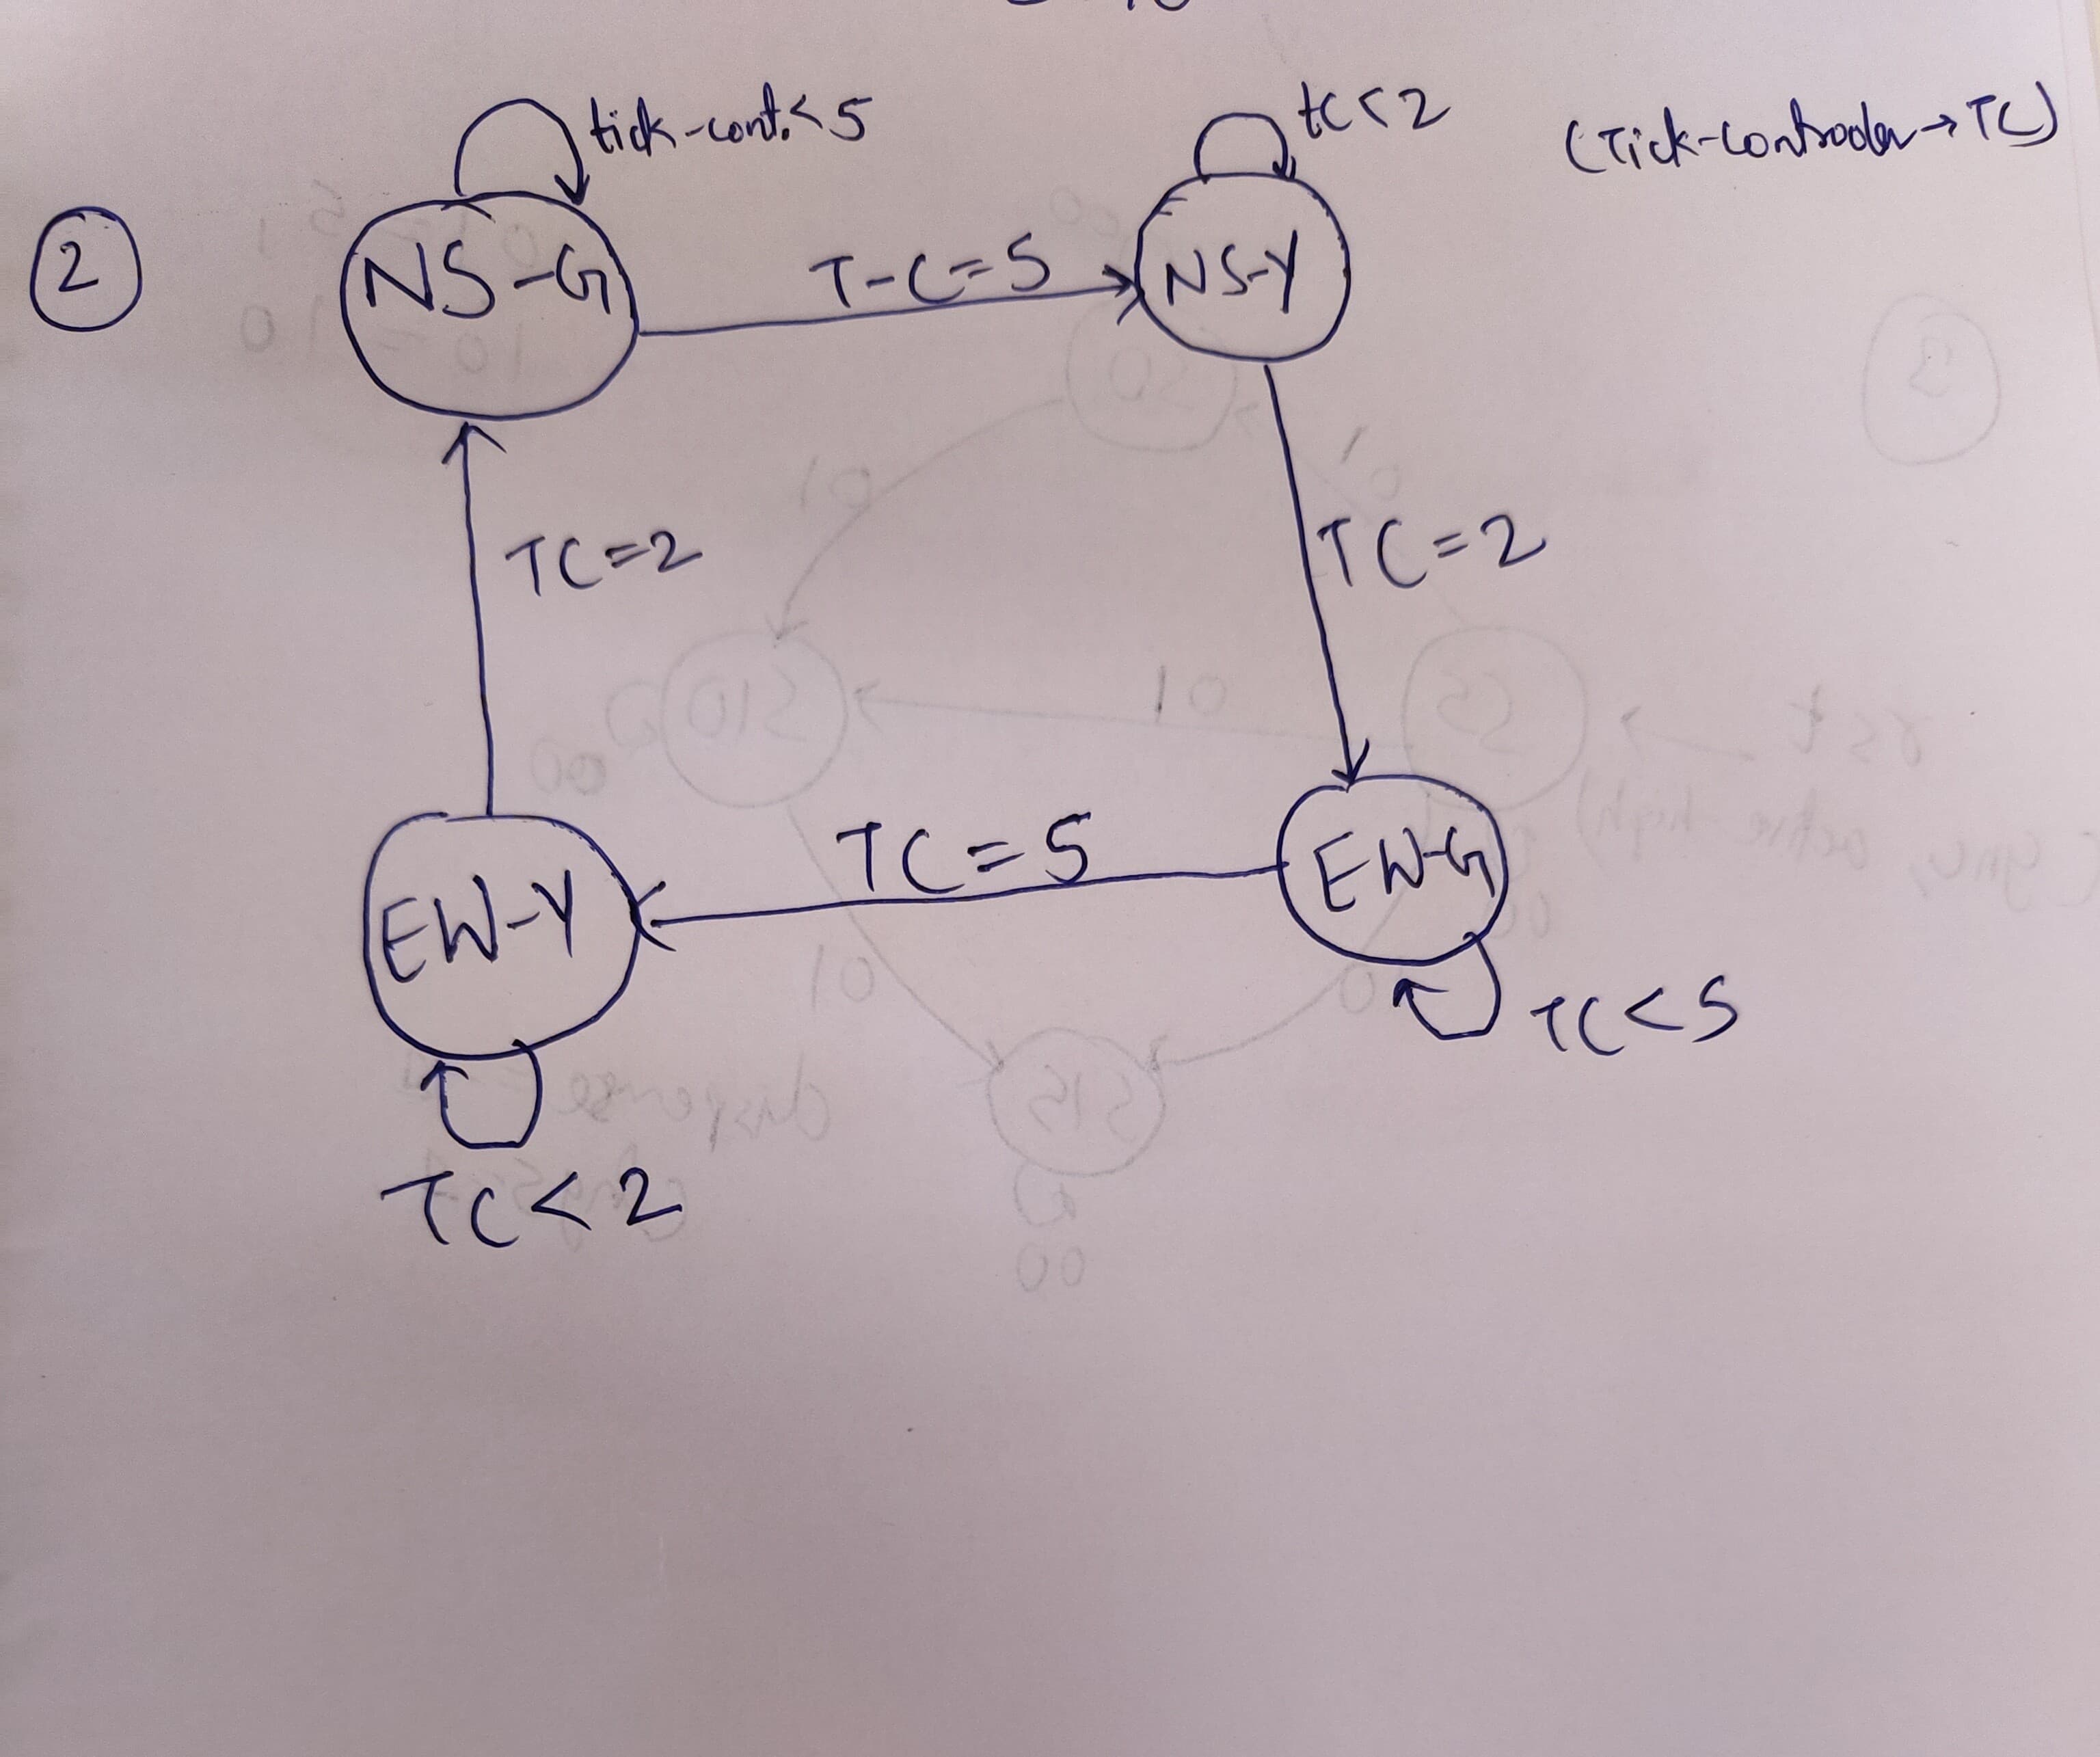 tick-cont.<5
tc<2
(Tick-controoler→TC)
2
NS-G
T-C=5
NS-Y
TC=2
TC=2
TC=5
EW-G
EW-Y
TC<5
TC<2